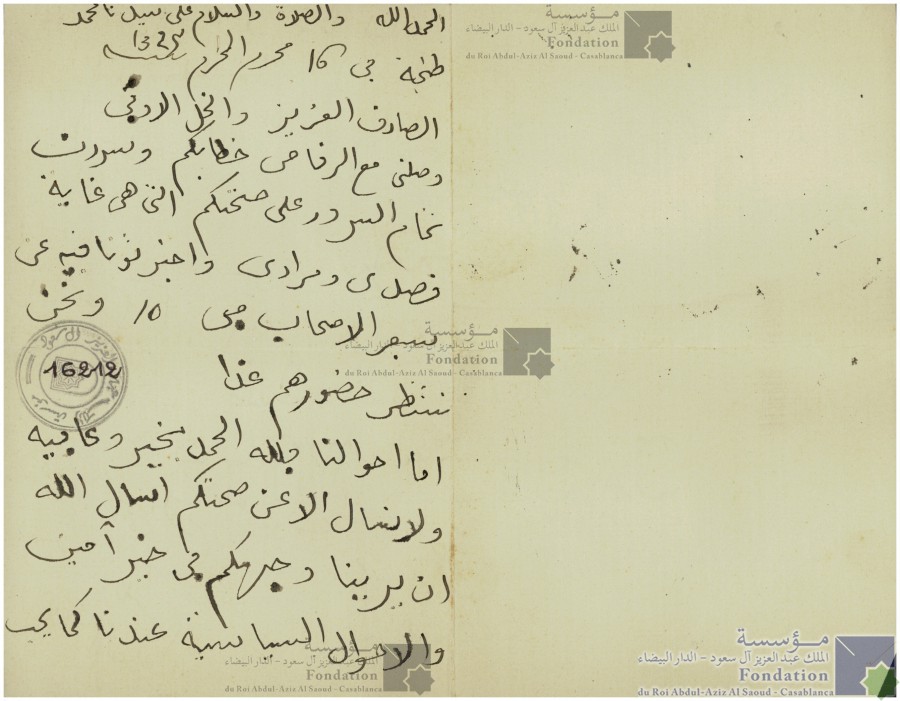 الحمد لله والصلاة والسلام على سيدنا محمد
طنجة في 16 محرم الحرم سنة 1325
الصادق العزيز والخل الاوفى
وصلني مع الرقاص خطابكم وسررت
تمام السرور على صحتكم التي هي غاية
قصدي ومرادي واخبرتونا فيه عن
سفر الاصحاب في 10 ونحن
ننتظر حضورهم غدا
اما احوالنا فلله الحمد بخير وعافيه
ولا نسال الا عن صحتكم اسال الله
ان يرينا وجهكم في خير آمين
والاحوال السياسية عندنا كما يجب
16212
مؤسسة
الملك عبد العزيز آل سعود - الدار البيضاء
Fondation
du Roi Abdul-Aziz Al Saoud - Casablanca
مؤسسة
الملك عبد العزيز آل سعود - الدار البيضاء
Fondation
du Roi Abdul-Aziz Al Saoud - Casablanca
مؤسسة
الملك عبد العزيز آل سعود - الدار البيضاء
Fondation
du Roi Abdul-Aziz Al Saoud - Casablanca
مؤسسة
الملك عبد العزيز آل سعود - الدار البيضاء
Fondation
du Roi Abdul-Aziz Al Saoud - Casablanca